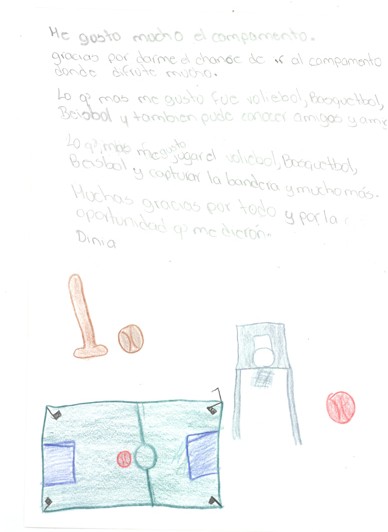 Me gusto mucho el campamento.
gracias por darme el chance de ir al campamento
donde difrute mucho.
Lo q' mas me gusto fue voliebol, Basquetbol,
Beisbol y tambien pude conocer amigos y ami
Lo q' mas me gusto jugar el voliebol, Basquetbol,
Beisbol y capturar la bandera y mucho más.
Muchas gracias por todo y por la
oportunidad q' me dieron.
Dinia